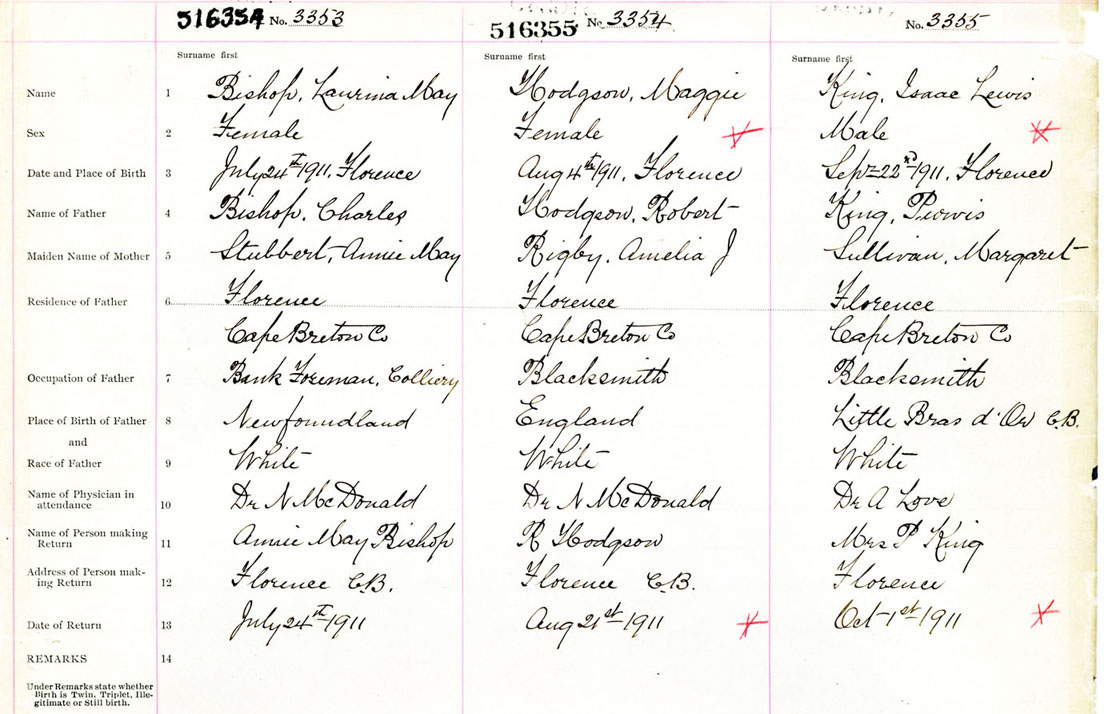 516354 No. 3353 516355 No 3354 No. 3355
Surname first Surname first Surname first
Name 1 Bishop, Laurina May Hodgson, Maggie King, Isaac Lewis
Sex 2 Female Female Male
Date and Place of Birth 3 July 24th 1911, Florence Aug 4th 1911, Florence Sep 22nd 1911, Florence
Name of Father 4 Bishop, Charles Hodgson, Robert King,
Maiden Name of Mother 5 Stubbert, Annie May Rigby, Amelia J Sullivan, Margaret
Residence of Father 6 Florence Florence Florence
Cape Breton Co Cape Breton Co Cape Breton Co
Occupation of Father 7 Bank Foreman, Colliery Blacksmith Blacksmith
Place of Birth of Father 8 Newfoundland England Little Bras d'Or C.B.
and
Race of Father 9 White White White
Name of Physician in
attendance 10 Dr N McDonald Dr N McDonald Dr A Love
Name of Person making
Return 11 Annie May Bishop R Hodgson Mrs P King
Address of Person mak-
ing Return 12 Florence C.B. Florence C.B. Florence
Date of Return 13 July 24th 1911 Aug 21st 1911 Oct 1st 1911
REMARKS 14
Under Remarks state whether
Birth is Twin, Triplet, Ille-
gitimate or Still birth.